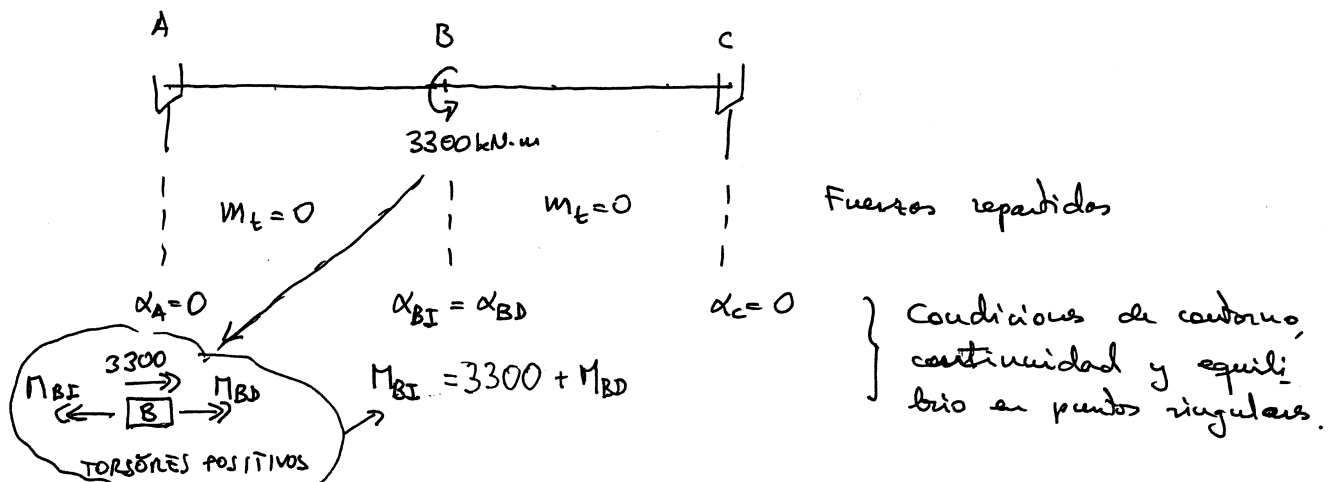 A B C
3300 kN·m
m_t = 0 m_t = 0 Fuerzos repartidos
α_A = 0 α_BI = α_BD α_C = 0
Condiciones de contorno,
continuidad y equili-
brio en puntos singulares.
3300
M_BI B M_BD
M_BI = 3300 + M_BD
TORSORES POSITIVOS